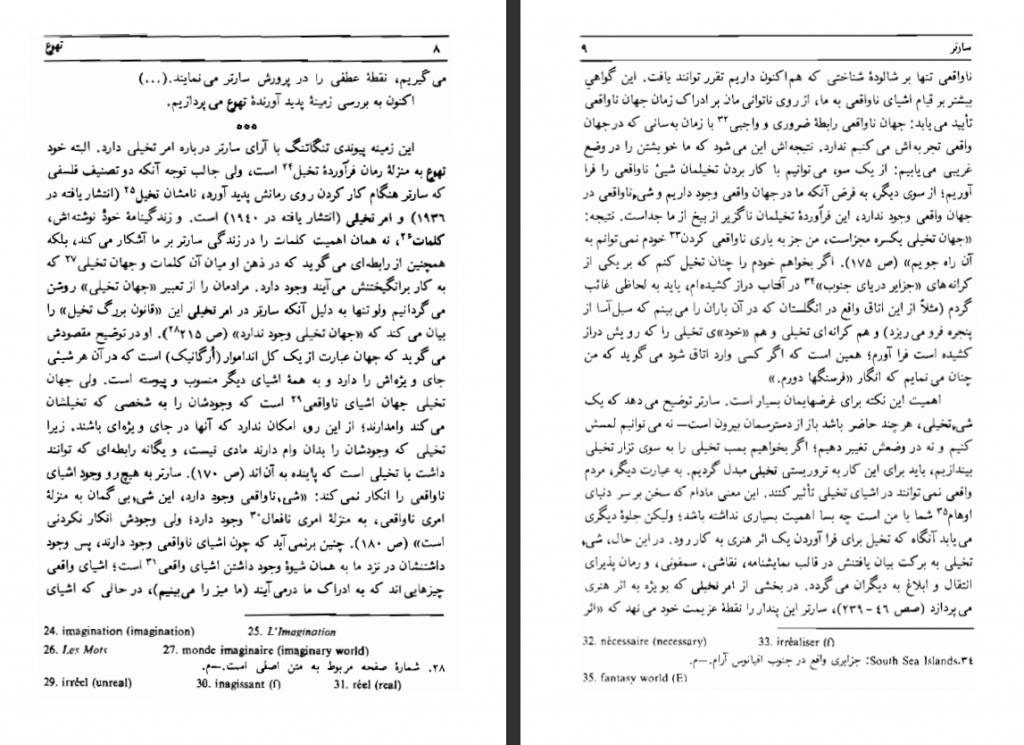 ۸ تهوع
می‌گیریم، نقطهٔ عطفی را در پرورش سارتر می‌نمایند.(...)
اکنون به بررسی زمینهٔ پدید آورندهٔ تهوع می‌پردازیم.
این زمینه پیوندی تنگاتنگ با آرای سارتر درباره امر تخیلی دارد. البته خود
تهوع به منزلهٔ رمان فرآوردهٔ تخیل۲۴ است، ولی جالب توجه آنکه دو تصنیف فلسفی
که سارتر هنگام کار کردن روی رمانش پدید آورد، نامشان تخیل۲۵ (انتشار یافته در
۱۹۳۶) و امر تخیلی (انتشار یافته در ۱۹۴۰) است. و زندگینامهٔ خودْ نوشته‌اش،
کلمات۲۶، نه همان اهمیت کلمات را در زندگی سارتر بر ما آشکار می‌کند، بلکه
همچنین از رابطه‌ای می‌گوید که در ذهن او میان آن کلمات و جهان تخیلی۲۷ که
به کار برانگیختنش می‌آیند وجود دارد. مرادمان را از تعبیر «جهان تخیلی» روشن
می‌گردانیم ولو تنها به دلیل آنکه سارتر در امر تخیلی این «قانون بزرگ تخیل» را
بیان می‌کند که «جهان تخیلی وجود ندارد» (ص ۲۱۵۲۸). او در توضیح مقصودش
می‌گوید که جهان عبارت از یک کل اندام‌وار (اُرگانیک) است که در آن هر شیئی
جای و یژه‌اش را دارد و به همهٔ اشیای دیگر منسوب و پیوسته است. ولی جهان
تخیلی جهان اشیای ناواقعی۲۹ است که وجودشان را به شخصی که تخیلشان
می‌کند وامدارند؛ از این رو، امکان ندارد که آنها در جای و یژه‌ای باشند. زیرا
تخیلی که وجودشان را بدان وام دارند مادی نیست، و یگانه رابطه‌ای که توانند
داشت با تخیلی است که پاینده به آن‌اند (ص ۱۷۰). سارتر به هیچ‌رو وجود اشیای
ناواقعی را انکار نمی‌کند: «شیء ناواقعی وجود دارد، این شیء بی‌گمان به منزلهٔ
امری ناواقعی، به منزلهٔ امری نافعال۳۰ وجود دارد؛ ولی وجودش انکار نکردنی
است» (ص ۱۸۰). چنین برنمی‌آید که چون اشیای ناواقعی وجود دارند، پس وجود
داشتنشان در نزد ما به همان شیوهٔ وجود داشتن اشیای واقعی۳۱ است؛ اشیای واقعی
چیزهایی‌اند که به ادراک ما درمی‌آیند (ما میز را می‌بینیم)، در حالی که اشیای
24. imagination (imagination) 25. L'Imagination
26. Les Mots 27. monde imaginaire (imaginary world)
۲۸. شمارهٔ صفحه مربوط به متن اصلی است.ــم.
29. irréel (unreal) 30. inagissant (f) 31. réel (real)
سارتر ۹
ناواقعی تنها بر شالودهٔ شناختی که هم‌اکنون داریم تقرر توانند یافت. این گواهیِ
بیشتر بر قیام اشیای ناواقعی به ما، از روی ناتوانی‌مان بر ادراک زمان جهان ناواقعی
تأیید می‌یابد: جهان ناواقعی رابطهٔ ضروری و واجبی۳۲ با زمان به‌سانی که در جهان
واقعی تجربه‌اش می‌کنیم ندارد. نتیجه‌اش این می‌شود که ما خویشتن را در وضع
غریبی می‌یابیم: از یک سو، می‌توانیم با کار بردن تخیلمان شیئ ناواقعی را فرا
آوریم؛ از سوی دیگر، به فرض آنکه ما در جهان واقعی وجود داریم و شیء ناواقعی در
جهان واقعی وجود ندارد، این فرآوردهٔ تخیلمان ناگزیر از بیخ از ما جداست. نتیجه:
«جهان تخیلی یکسره مجزاست، من جز به یاری ناواقعی کردن۳۳ خودم نمی‌توانم به
آن راه جویم» (ص ۱۷۵). اگر بخواهم خودم را چنان تخیل کنم که بر یکی از
کرانه‌های «جزایر دریای جنوب»۳۴ در آفتاب دراز کشیده‌ام، باید به لحاظی غائب
گردم (مثلاً از این اتاق واقع در انگلستان که در آن باران را می‌بینم که سیل‌آسا از
پنجره فرو می‌ریزد) و هم کرانه‌ای تخیلی و هم «خود»ی تخیلی را که رویش دراز
کشیده است فرا آورم؛ همین است که اگر کسی وارد اتاق شود می‌گوید که من
چنان می‌نمایم که انگار «فرسنگها دورم.»
اهمیت این نکته برای غرضهایمان بسیار است. سارتر توضیح می‌دهد که یک
شیء تخیلی، هر چند حاضر باشد باز از دسترسمان بیرون است— نه می‌توانیم لمسش
کنیم و نه در وضعش تغییر دهیم؛ اگر بخواهیم بمب تخیلی را به سوی تزار تخیلی
بیندازیم، باید برای این کار به تروریستی تخیلی مبدل گردیم. به عبارت دیگر، مردم
واقعی نمی‌توانند در اشیای تخیلی تأثیر کنند. این معنی مادام که سخن بر سر دنیای
اوهام۳۵ شما یا من است چه بسا اهمیت بسیاری نداشته باشد؛ ولیکن جلوهٔ دیگری
می‌یابد آنگاه که تخیل برای فرا آوردن یک اثر هنری به کار رود. در این حال، شیء
تخیلی به برکت بیان یافتنش در قالب نمایشنامه، نقاشی، سمفونی، و رمان پذیرای
انتقال و ابلاغ به دیگران می‌گردد. در بخشی از امر تخیلی که بویژه به اثر هنری
می‌پردازد (صص ۴۶-۲۳۹)، سارتر این پندار را نقطهٔ عزیمت خود می‌نهد که «اثر
32. nécessaire (necessary) 33. irréaliser (f)
۳۴.South Sea Islands: جزایری واقع در جنوب اقیانوس آرام.ــم.
35. fantasy world (E)